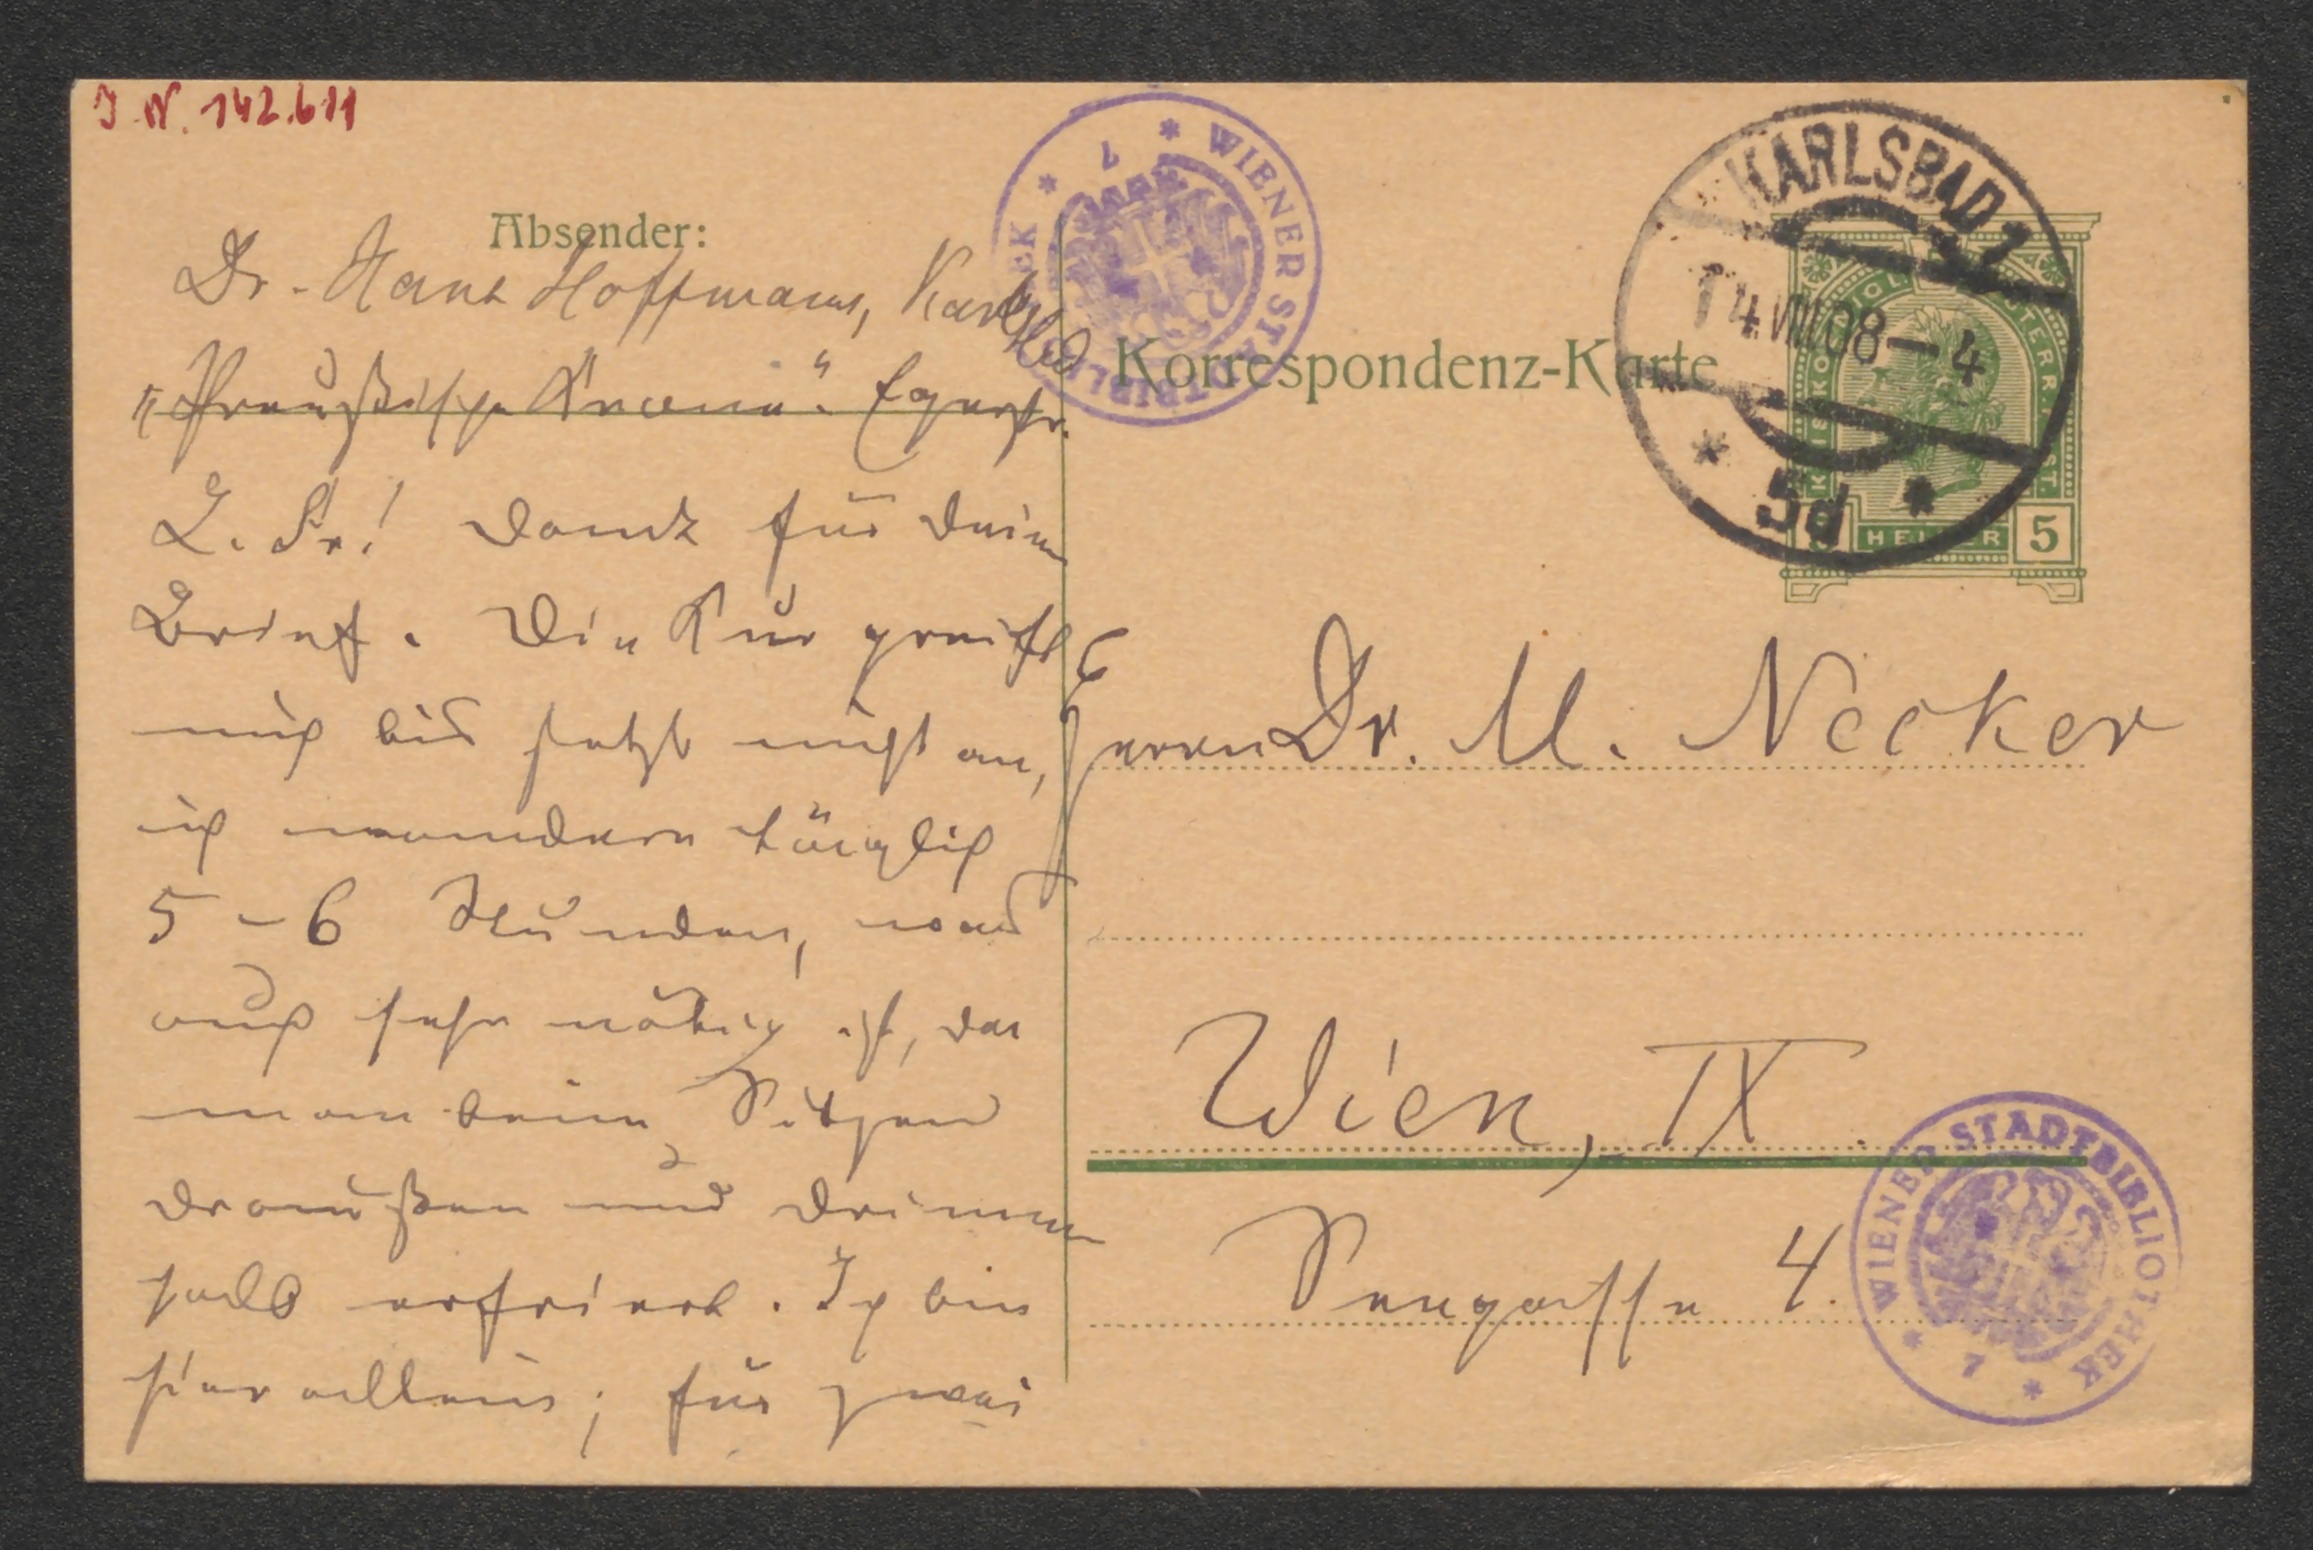 J. N. 142.611
Absender:
Dr. Hans Hoffmann, Karlsbad
"Preußische Krone". Egerstr.
L. Fr.! Dank für deinen
Brief. Die Kur greift
mich bis jetzt nicht an,
ich wandere täglich
5-6 Stunden, was
auch sehr nötig ist, da
man beim Sitzen
draußen und drinnen
halb erfriert. Ich bin
hier allein; für zwei
WIENER STADTBIBLIOTHEK
7
Korrespondenz-Karte
KARLSBAD 1
14.VIII.08-4
5d
5 HELLER 5
Herrn Dr. M. Necker
Wien, IX.
Seegasse 4.
WIENER STADTBIBLIOTHEK
7